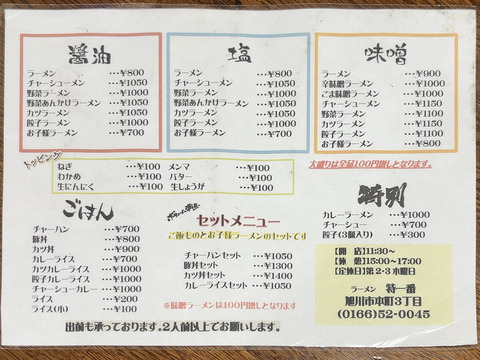 醤油
ラーメン ・・・¥800
チャーシューメン ・・・¥1050
野菜ラーメン ・・・¥1000
野菜あんかけラーメン ・・・¥1050
カツラーメン ・・・¥1050
餃子ラーメン ・・・¥1000
お子様ラーメン ・・・¥700
塩
ラーメン ・・・¥800
チャーシューメン ・・・¥1050
野菜ラーメン ・・・¥1000
野菜あんかけラーメン ・・・¥1050
カツラーメン ・・・¥1050
餃子ラーメン ・・・¥1000
お子様ラーメン ・・・¥700
味噌
ラーメン ・・・¥900
辛味噌ラーメン ・・・¥1000
ごま味噌ラーメン ・・・¥1000
チャーシューメン ・・・¥1150
野菜ラーメン ・・・¥1100
カツラーメン ・・・¥1150
餃子ラーメン ・・・¥1100
お子様ラーメン ・・・¥800
大盛りは全品100円増しとなります。
トッピング
ねぎ ・・・¥100 メンマ ・・・¥100
わかめ ・・・¥100 バター ・・・¥100
生にんにく ・・・¥100 生しょうが ・・・¥100
ごはん
チャーハン ・・・¥700
豚丼 ・・・¥800
カツ丼 ・・・¥900
カレーライス ・・・¥700
カツカレーライス ・・・¥1050
餃子カレーライス ・・・¥1000
チャーシューカレー ・・・¥1050
ライス ・・・¥200
ライス(小) ・・・¥100
セットメニュー
ご飯ものとお子様ラーメンのセットです
チャーハンセット ・・・¥1050
豚丼セット ・・・¥1300
カツ丼セット ・・・¥1400
カレーライスセット ・・・¥1050
※味噌ラーメンは100円増しとなります
特別
カレーラーメン ・・・¥1000
チャーシュー ・・・¥700
餃子(3個入り) ・・・¥300
【開 店】11:30~
【休 憩】15:00~17:00
【定休日】第2・3水曜日
ラーメン 特一番
旭川市本町3丁目
(0166)52-0045
出前も承っております。2人前以上でお願いします。